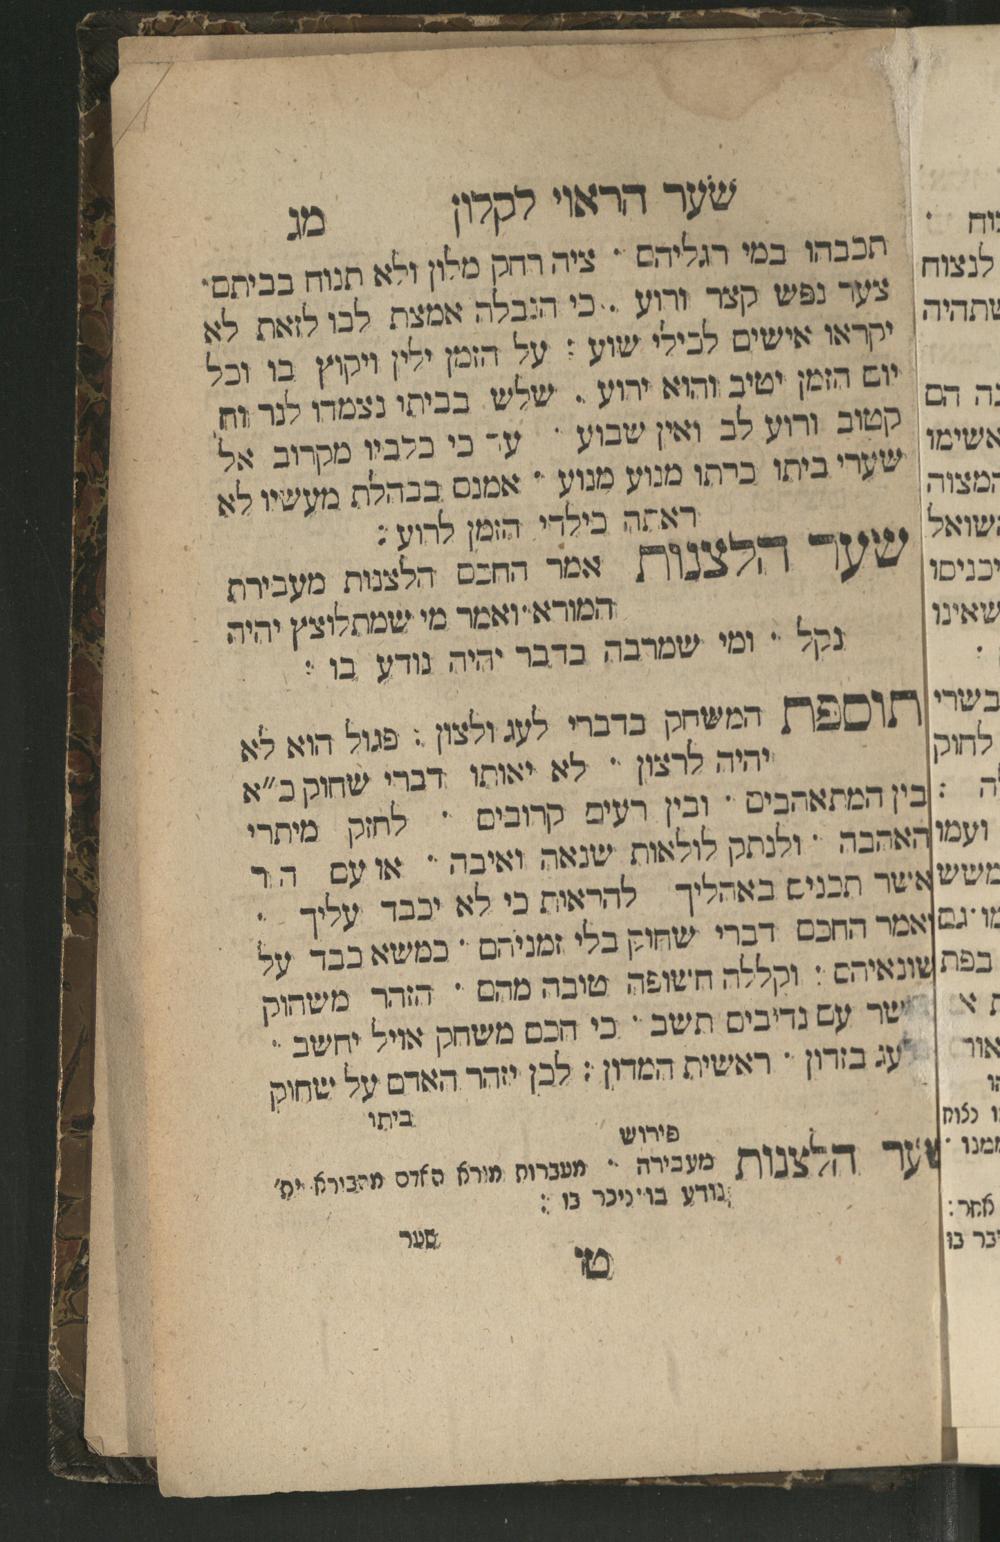 שער הראוי לקלון מג
תכבהו במי רגליהם · ציה רחק מלון ולא תנוח בביתם ·
צער נפש קצר ורוע . כי הנבלה אמצת לבו לזאת לא
יקראו אישים לכילי שוע : על הזמן ילין ויקוץ בו וכל
יום הזמן יטיב והוא ירוע . שלש בביתו נצמדו לנר וח'
קטוב ורוע לב ואין שבוע · כי כלביו מקרוב אל
שערי ביתו ברתו מנוע מנוע · אמנם בבהלת מעשיו לא
ראתה כילדי הזמן לרוע :
שער הלצנות אמר החכם הלצנות מעבירת
המורא · ואמר מי שמתלוצץ יהיה
נקל · ומי שמרבה בדבר יהיה נודע בו :
תוספת המשחק בדברי לעג ולצון : פגול הוא לא
יהיה לרצון · לא יאותו דברי שחוק כ״א
בין המתאהבים · ובין רעים קרובים · לחזק מיתרי
האהבה · ולנתק לולאות שנאה ואיבה · או עם
אשר תכניס באהליך להראות כי לא יכבד עליך ·
ואמר החכם דברי שחוק בלי זמניהם · כמשא כבד על
שונאיהם : וקללה חשופה טובה מהם · הזהר משחוק
עם נדיבים תשב · כי חכם משחק אויל יחשב ·
בזדון · ראשית המדון : לכן יזהר האדם על שחוק
ביתו
פירוש
שער הלצנות מעבירה · מעברות מורא האדם מהבורא ית'
נודע בו · ניכר בו :
שער
ט
נוח ·
לנצוח
שתהיה
הם
אשימו
המצוה
יכניסו
שאינו
:
בשרי
לחוק
:
ועמו
משש
גם
בפת
אור
ממנו ·
אחר :
בו